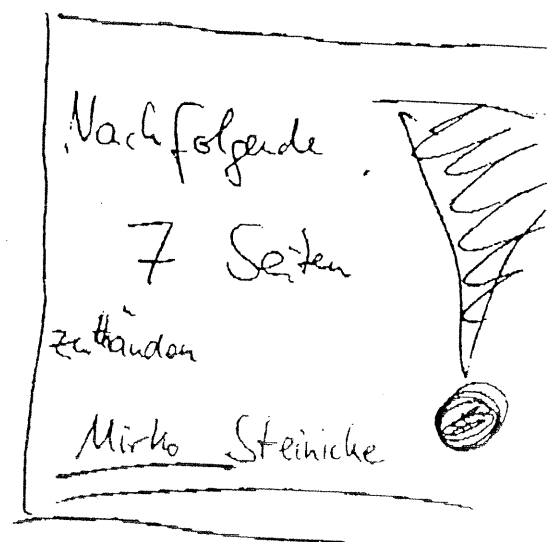 Nachfolgende
7 Seiten
zu Händen
Mirko Steinicke